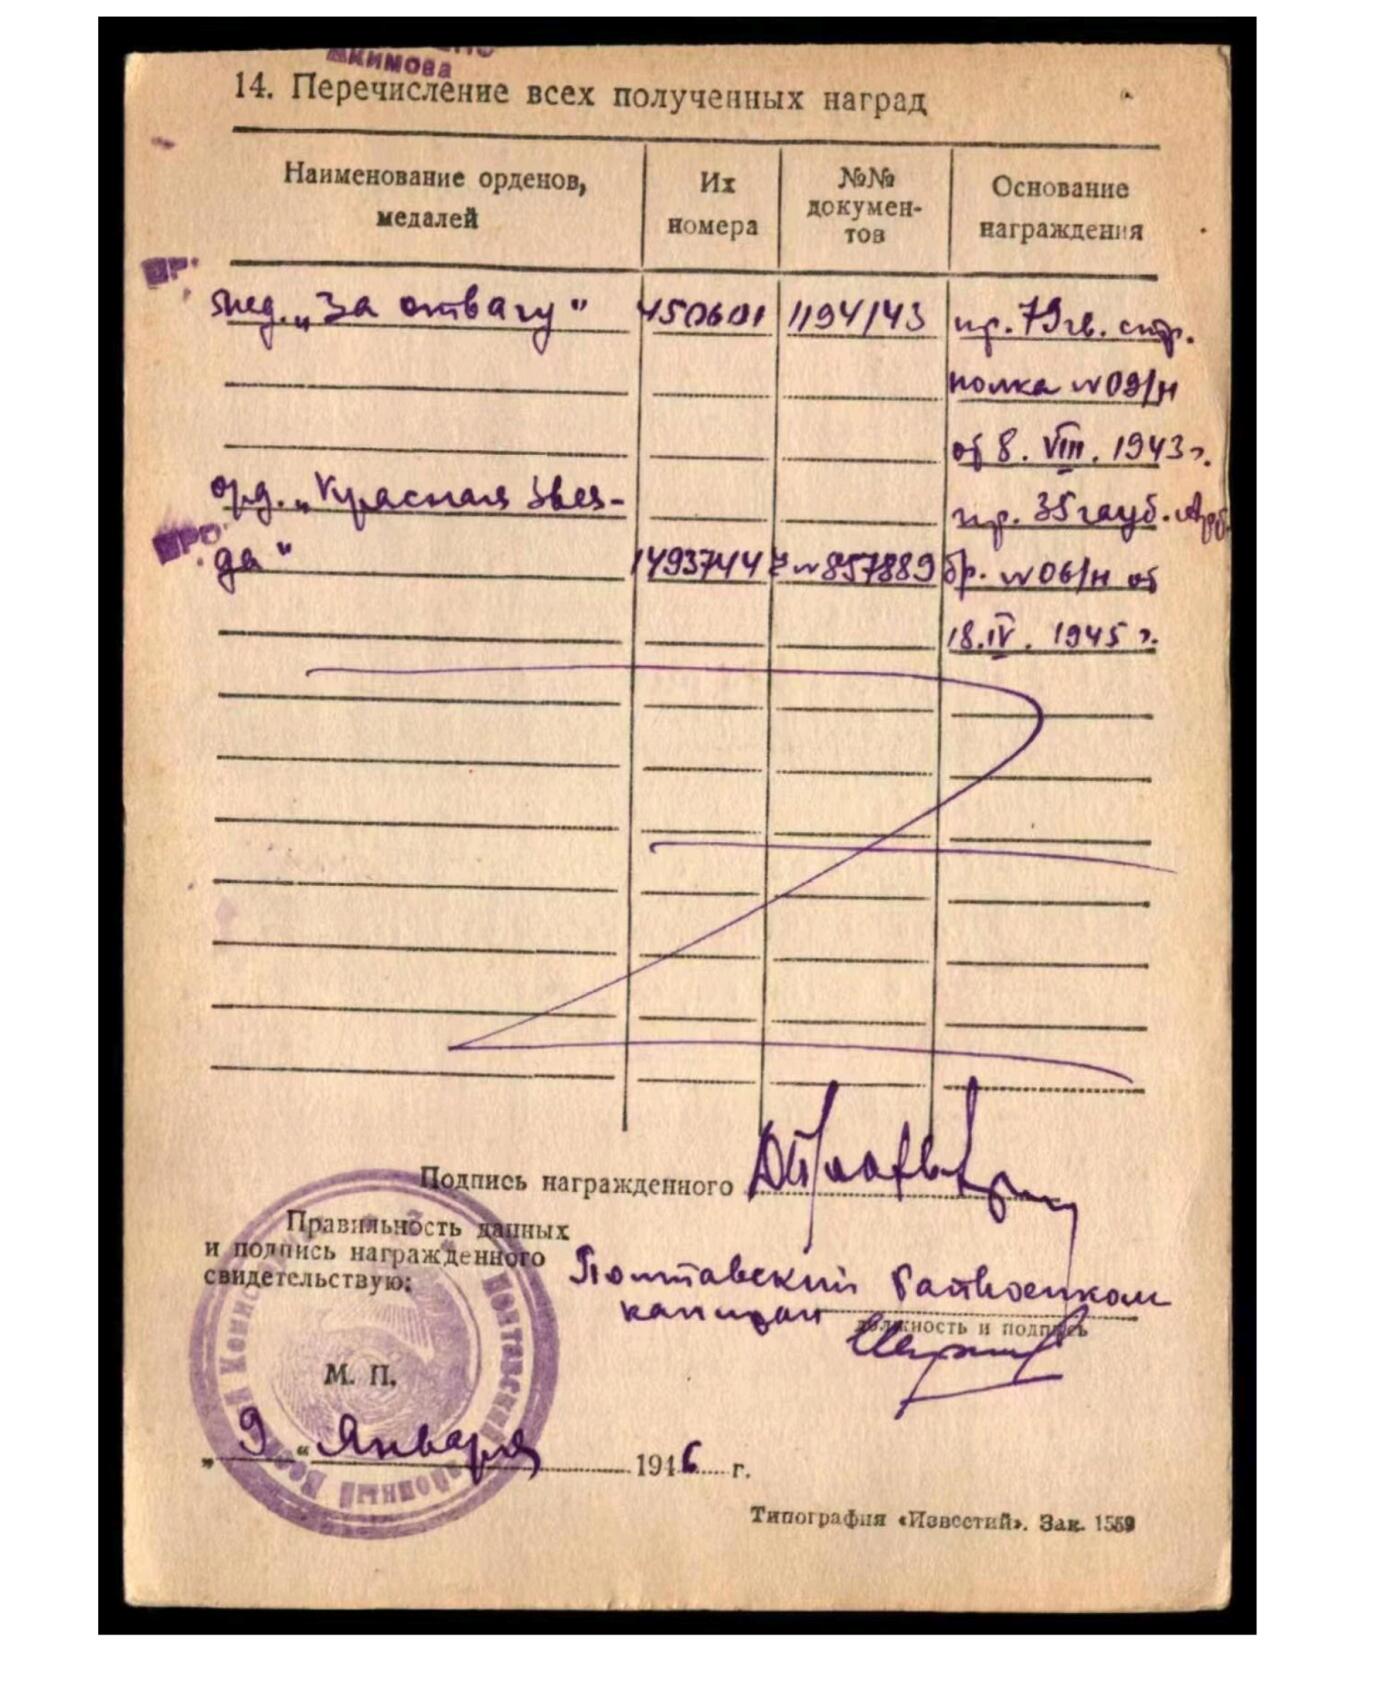 Акимова
14. Перечисление всех полученных наград
Наименование орденов, медалей
Их номера
№№ документов
Основание награждения
ПР
мед. „За отвагу" 450601 1194/43 пр. 79 гв. стр.
полка №09/н
от 8. VIII. 1943 г.
орд. „Красная Звез-
пр. 35 гауб. Арт.
ПРО
да" 1493744 № 857889 бр. №06/н от
18.IV. 1945 г.
Подпись награжденного
Правильность данных
и подпись награжденного
свидетельствую:
Полтавский Райвоенком
капитан
должность и подпись
М. П.
„ 9 " Января 1946 г.
Типография «Известий». Зак. 1559